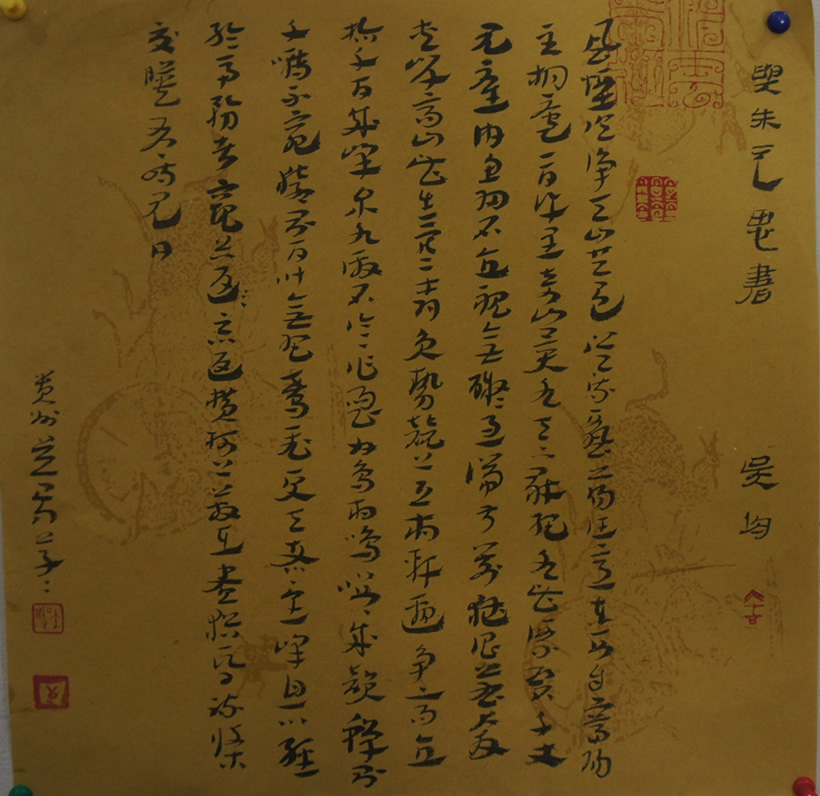 與朱元思書 吳均
風煙俱淨天山共色從流飄蕩任意東西自富陽
至桐廬一百許里奇山異水天下獨絕水皆縹碧千丈
見底游魚細石直視無礙急湍甚箭猛浪若奔
夾岸高山皆生寒樹負勢競上互相軒邈爭高直
指千百成峰泉水激石泠泠作響好鳥相鳴嚶嚶成韻蟬則
千轉不窮猿則百叫無絕鳶飛戾天者望峰息心經
綸世務者窺谷忘返橫柯上蔽在晝猶昏疏條
交映有時見日
貴州